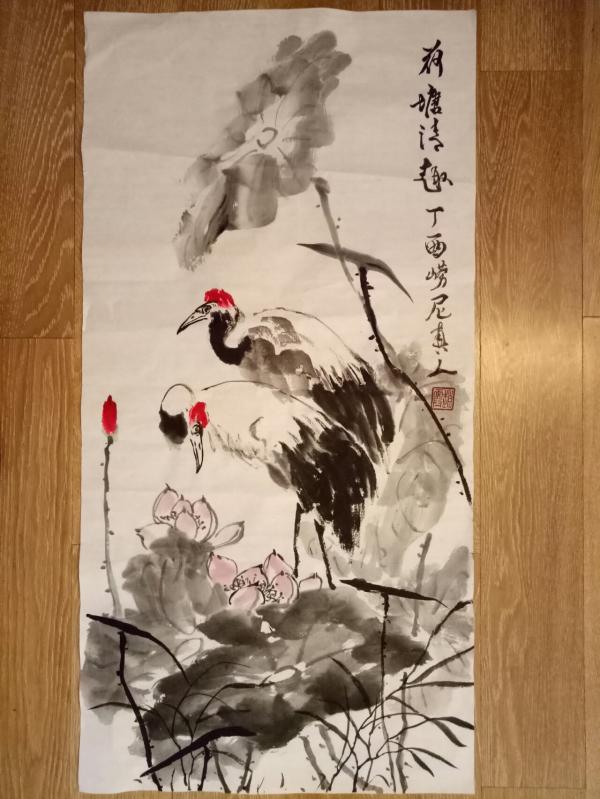 荷塘清趣丁酉崂尼真人